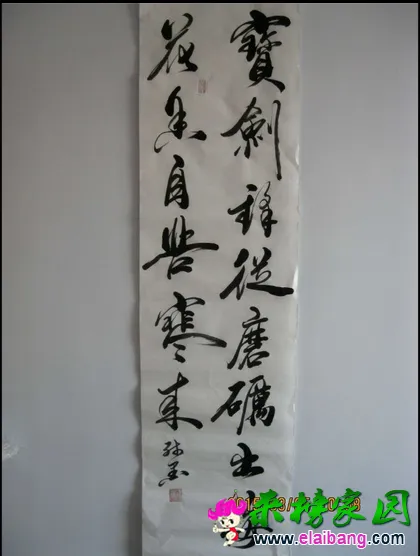 寶劍鋒從磨礪出梅
花香自苦寒来
来榜家园
www.elaibang.com